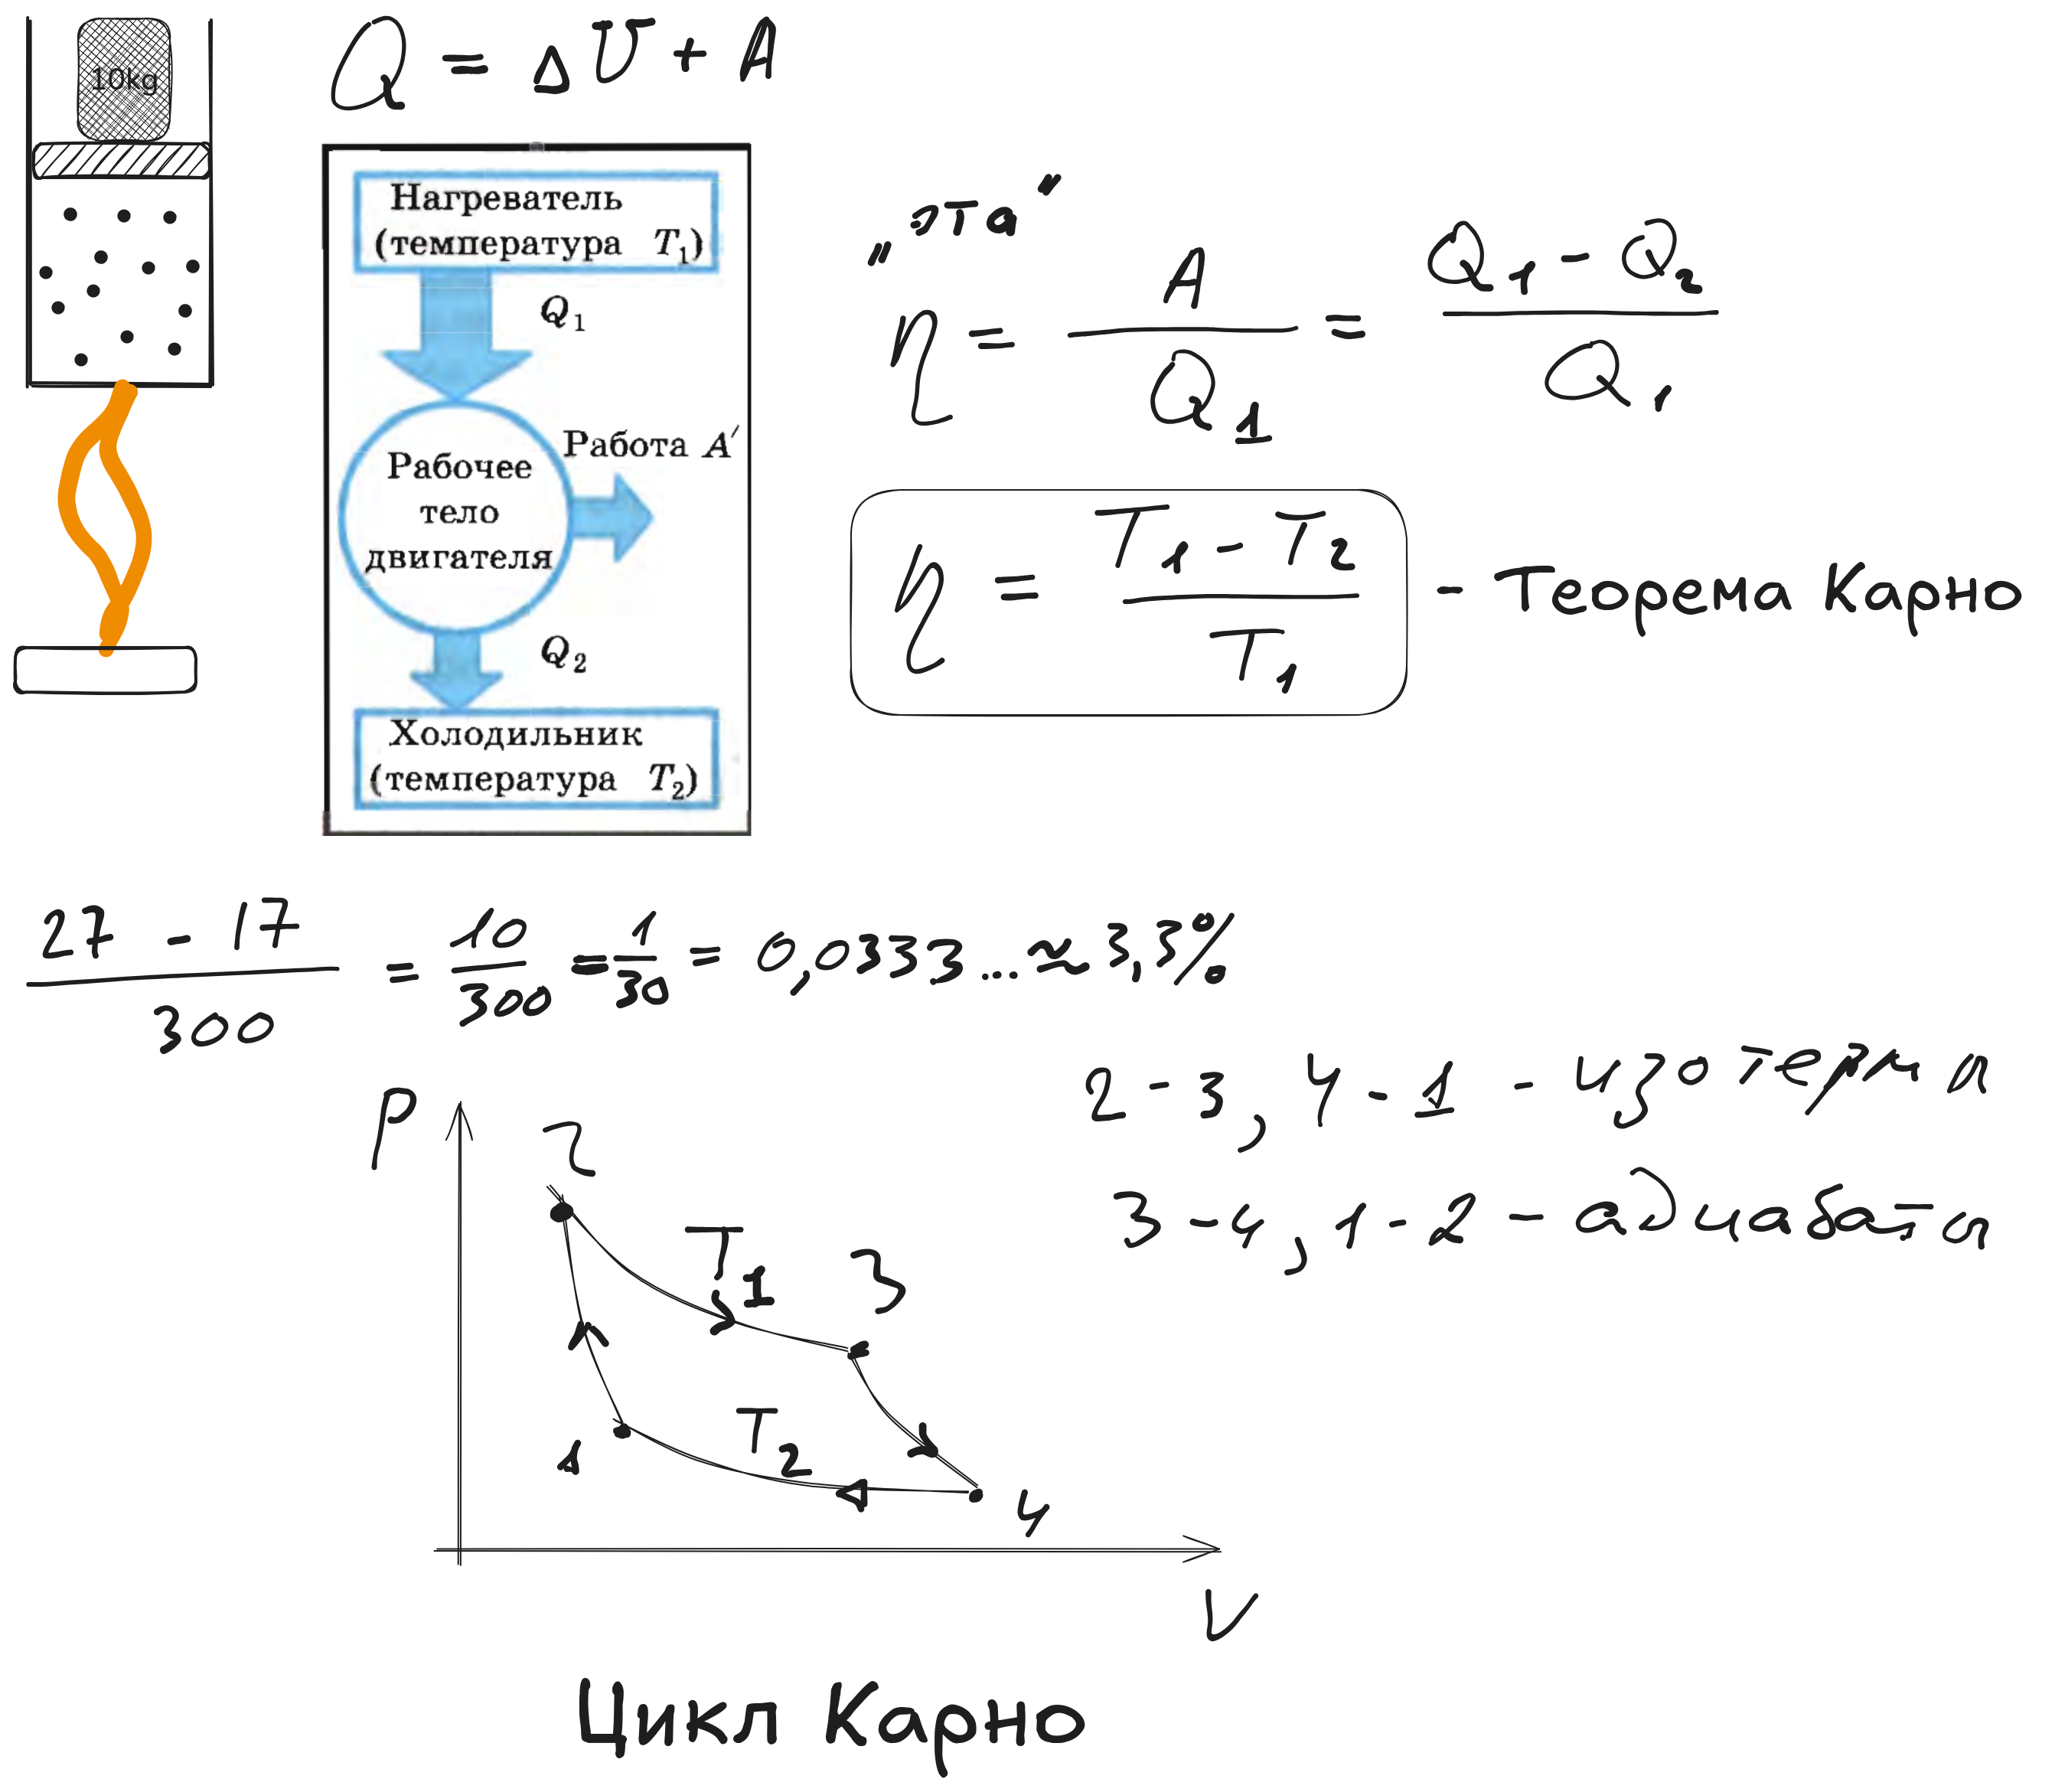 10kg
Q = ΔU + A
Нагреватель
(температура T₁)
Q₁
Рабочее
тело
двигателя
Работа A′
Q₂
Холодильник
(температура T₂)
„эта"
η = A / Q₁ = (Q₁ - Q₂) / Q₁
η = (T₁ - T₂) / T₁ - Теорема Карно
(27 - 17) / 300 = 10 / 300 = 1 / 30 = 0,0333... ≈ 3,3%
2 - 3, 4 - 1 - изотерма
3 - 4, 1 - 2 - адиабата
P
2
T₁
3
T₂
1
4
V
Цикл Карно